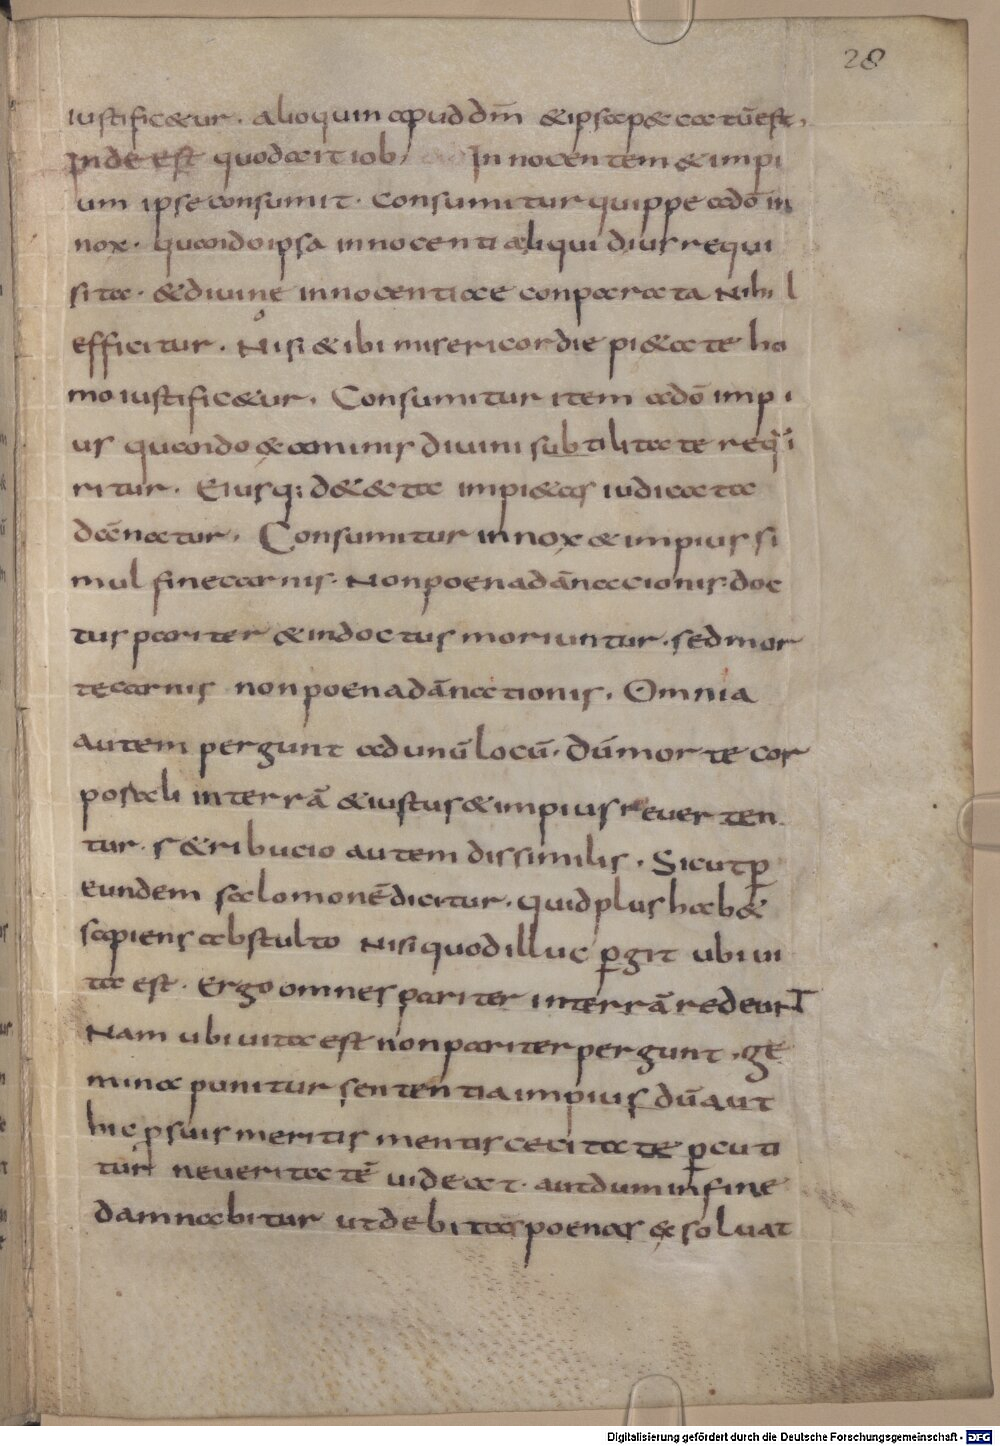 28
iustific&ur. alioquin apud dm̄ &ipsa p&catū est,
Inde est quod ait iob, Innocentem & impi
um ipse consumit. Consumitur quippe adō in
nox. quando ipsa innocentia liquidius requi
sita. & diuine innocentiae conparata Nihil
efficitur. Nisi & ibi misericordie pi&ate ho
mo iustific&ur. Consumitur item adō impi
us quando & animis diuini subtilitate requi
ritur. Eiusq; d&ecta impi&as iudicata
dānatur. Consumitur innox & impius si
mul fine carnis. Non poena dānacionis. doc
tus pariter & indoctus moriuntur. sed mor
te carnis non poena dānationis. Omnia
autem pergunt ad unū locū. Dū morte cor
pos ali in terrā & iustus & impius reuerten
tur. s& ribucio autem dissimilis. Sicut ꝑ
eundem salomonē dicitur. quid plus hab&
sapiens ab stulto Nisi quod illuc ꝑgit ubi ui
ta est. Ergo omnes pariter in terrā redeunt
Nam ubi uita est non pariter pergunt. ge
mina punitur sententia impius dū aut
hic ꝓ suis meritis mentis cecitate ꝑcuti
tur ne ueritatē uideat. aut dum in fine
damnabitur ut debitas poenas & soluat
Digitalisierung gefördert durch die Deutsche Forschungsgemeinschaft - DFG